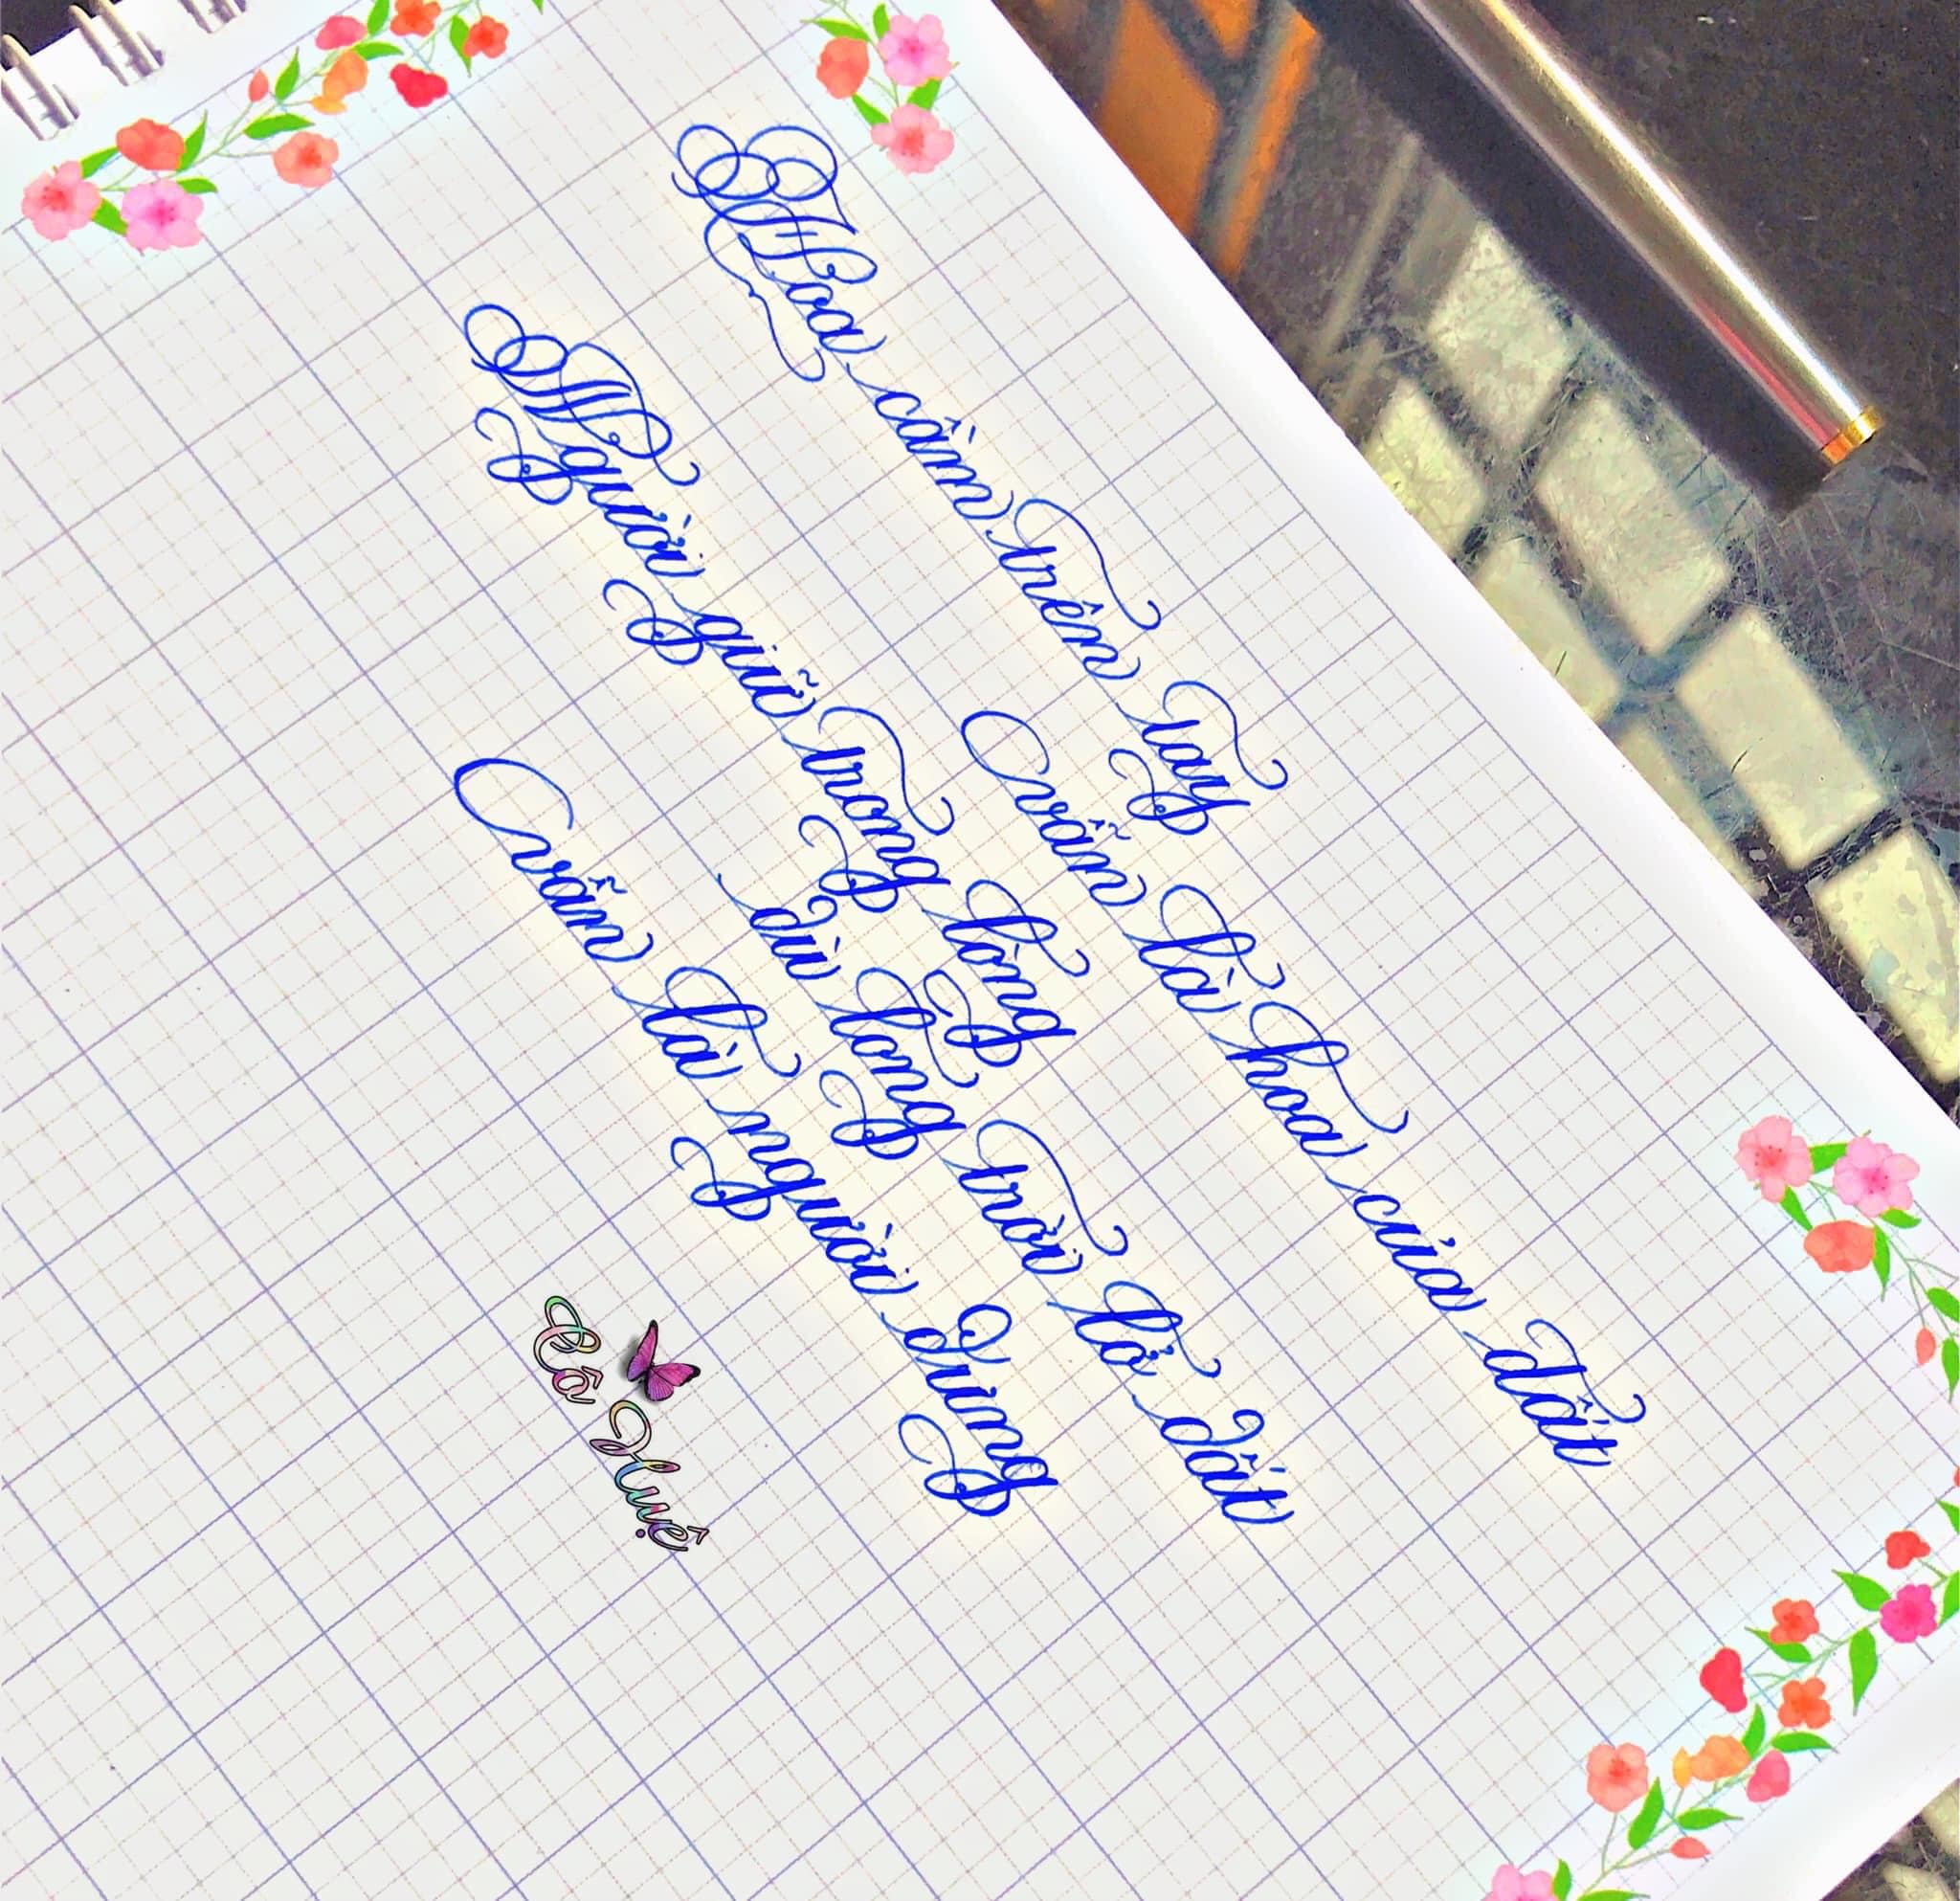 Hoa cầm trên tay
vẫn là hoa của đất
Người giữ trong lòng
dù long trời lở đất
vẫn là người dưng